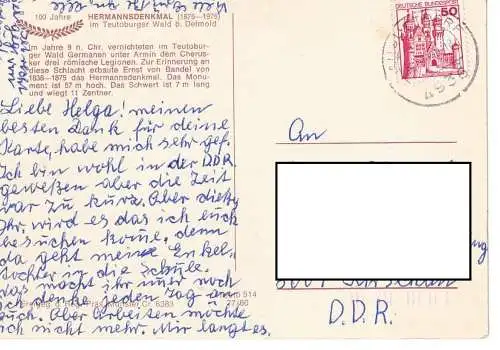 100 Jahre HERMANNSDENKMAL (1875–1975)
im Teutoburger Wald b. Detmold
Im Jahre 9 n. Chr. vernichteten im Teutobur-
ger Wald Germanen unter Armin dem Cherus-
ker drei römische Legionen. Zur Erinnerung an
diese Schlacht erbaute Ernst von Bandel von
1838–1875 das Hermannsdenkmal. Das Monu-
ment ist 57 m hoch. Das Schwert ist 7 m lang
und wiegt 11 Zentner.
Liebe Helga! meinen
besten Dank für deine
Karte, habe mich sehr gef.
Ich bin wohl in der DDR
geweßen aber die Zeit
war zu kurz. Aber dießes
Jhr, wird es das ich euch
besuchen kome, denn
da geht meine Enkel-
tochter in die Schule.
das macht ihr nur noch
ich denke jeden Tag an
euch. Aber Arbeiten möchte
ich nicht mehr. Mir langt es.
514
27/60
6383
DEUTSCHE BUNDESPOST
50
493
An
D.D.R.